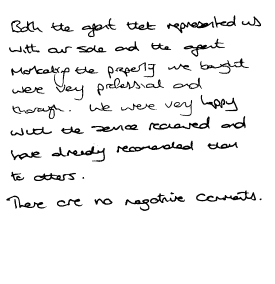 Both the agent that represented us
with our sale and the agent
marketing the property we bought
were very professional and
thorough. We were very happy
with the service recieved and
have already recomended them
to others.
There are no negative comments.